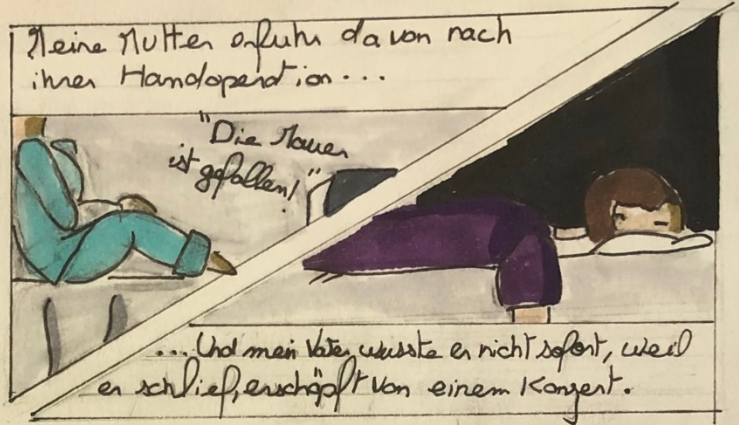 Meine Mutter erfuhr davon nach
ihrer Handoperation...
"Die Mauer
ist gefallen!"
... Und mein Vater wusste er nicht sofort, weil
er schlief, erschöpft von einem Konzert.